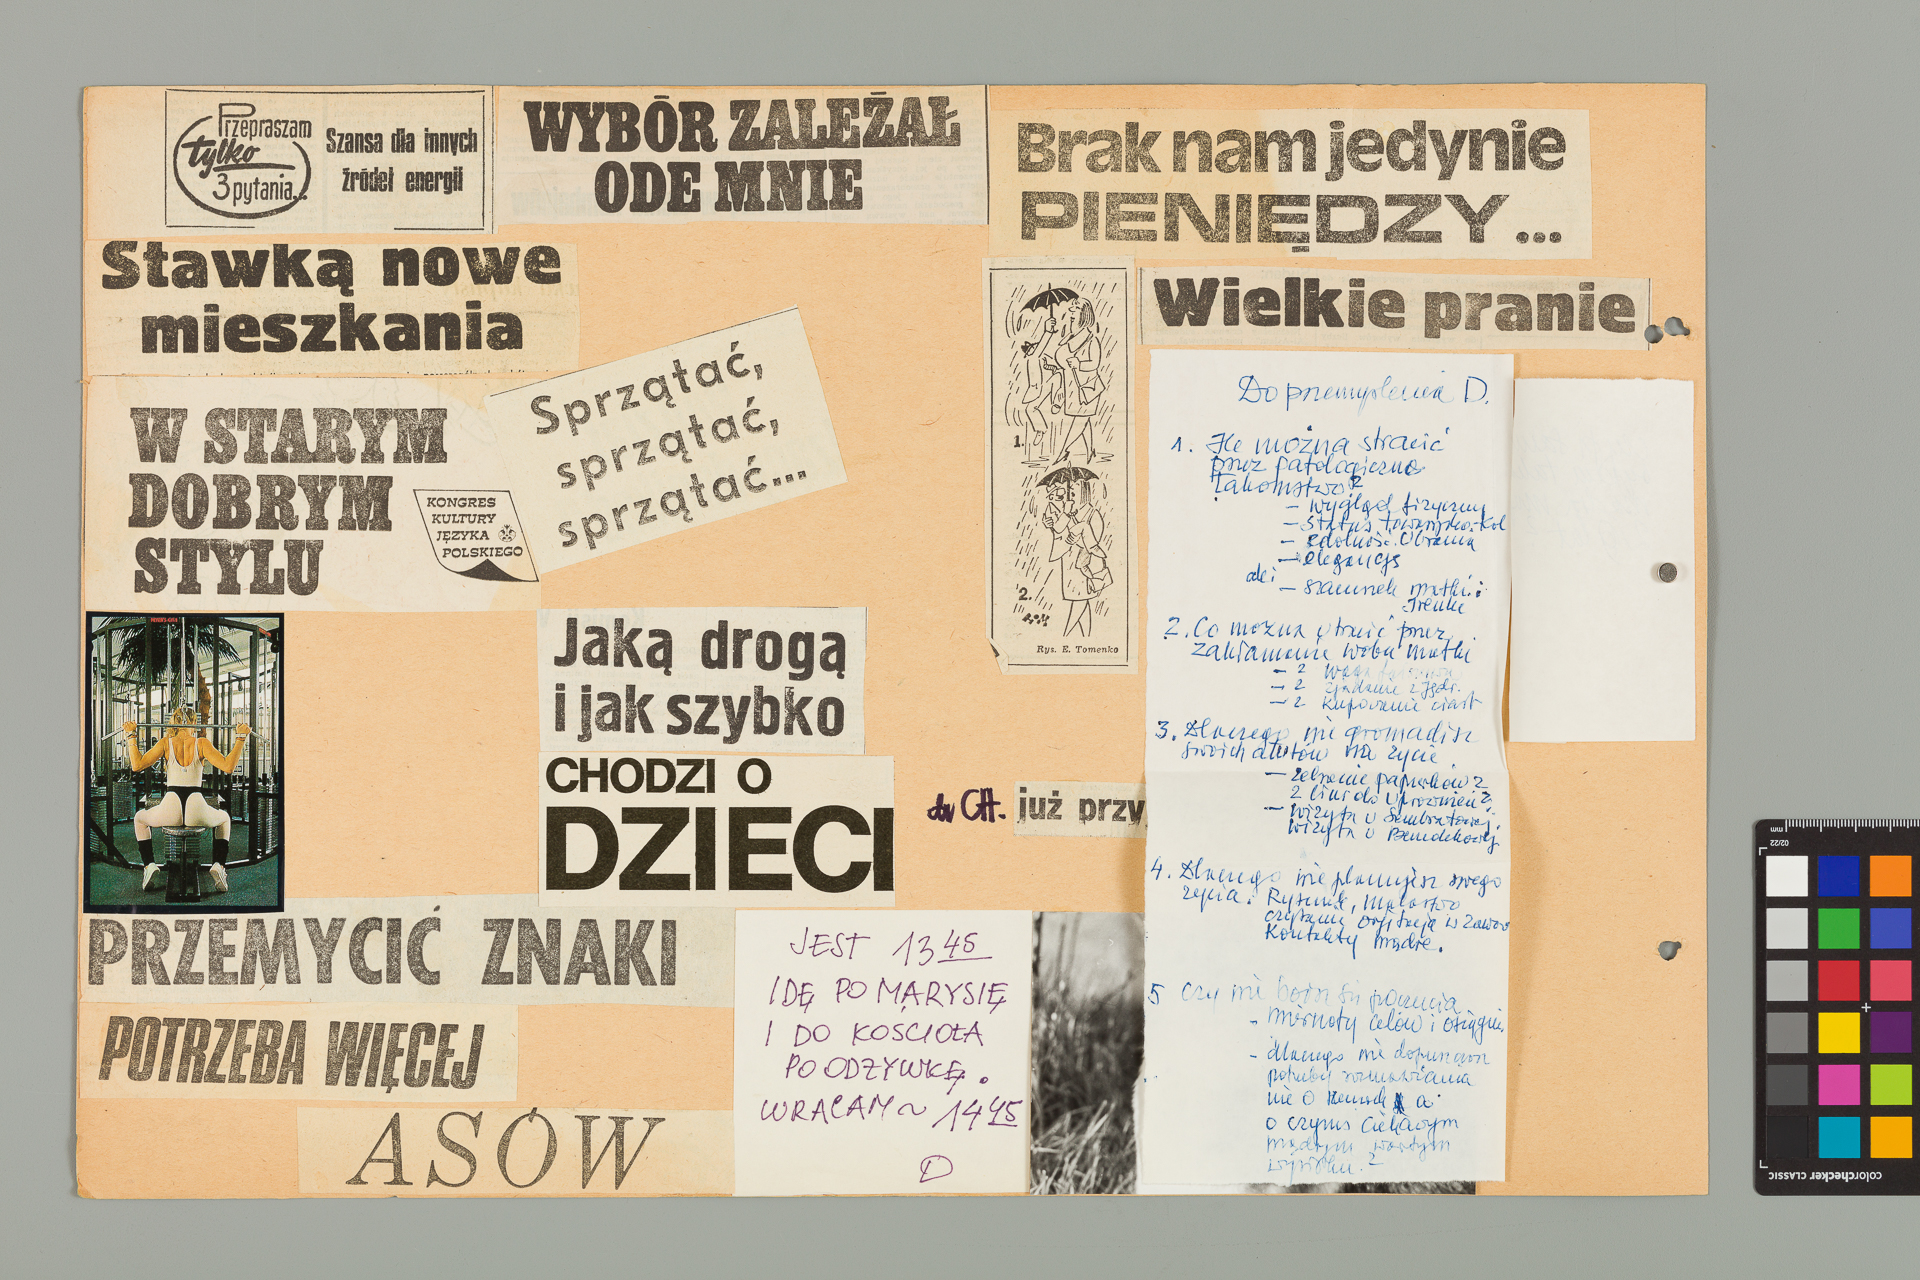 Przepraszam
tylko
3 pytania...
Szansa dla innych
źródeł energii
WYBÓR ZALEŻAŁ
ODE MNIE
Brak nam jedynie
PIENIĘDZY...
Stawką nowe
mieszkania
Wielkie pranie
Sprzątać,
sprzątać,
sprzątać...
W STARYM
DOBRYM
STYLU
KONGRES
KULTURY
JĘZYKA
POLSKIEGO
1.
2.
Rys. E. Tomenko
Jaką drogą
i jak szybko
CHODZI O
DZIECI
CH. już przy
PRZEMYCIĆ ZNAKI
POTRZEBA WIĘCEJ
ASÓW
JEST 13 45
IDĘ PO MARYSIĘ
I DO KOŚCIOŁA
PO ODŻYWKĘ.
WRACAM ~ 14 45
D
Do przemyślenia D.
1. Ile można stracić
przez patologiczne
łakomstwo?
- wygląd fizyczny
- status
- zdolność ubrania
- elegancję
- szacunek matki i
Irenki
2. Co można stracić przez
zakłamanie wobec matki
- z
- z zjadanie z
- z kupowanie ciast
3. Dlaczego nie gromadzisz
swoich atutów na życie
- zebranie papierków z
- wizyta u
wizyta u
4. Dlaczego nie planujesz swego
życia. Rysunek, malarstwo
czytanie,
kontakty mądre.
5 Czy nie boisz się poczucia
- miernoty celów i osiągnięć
- dlaczego nie dopuszczasz
potrzeby rozmawiania
nie o a
o czymś ciekawym
mądrym wartym
wysiłku.?
colorchecker CLASSIC
mm
02/22